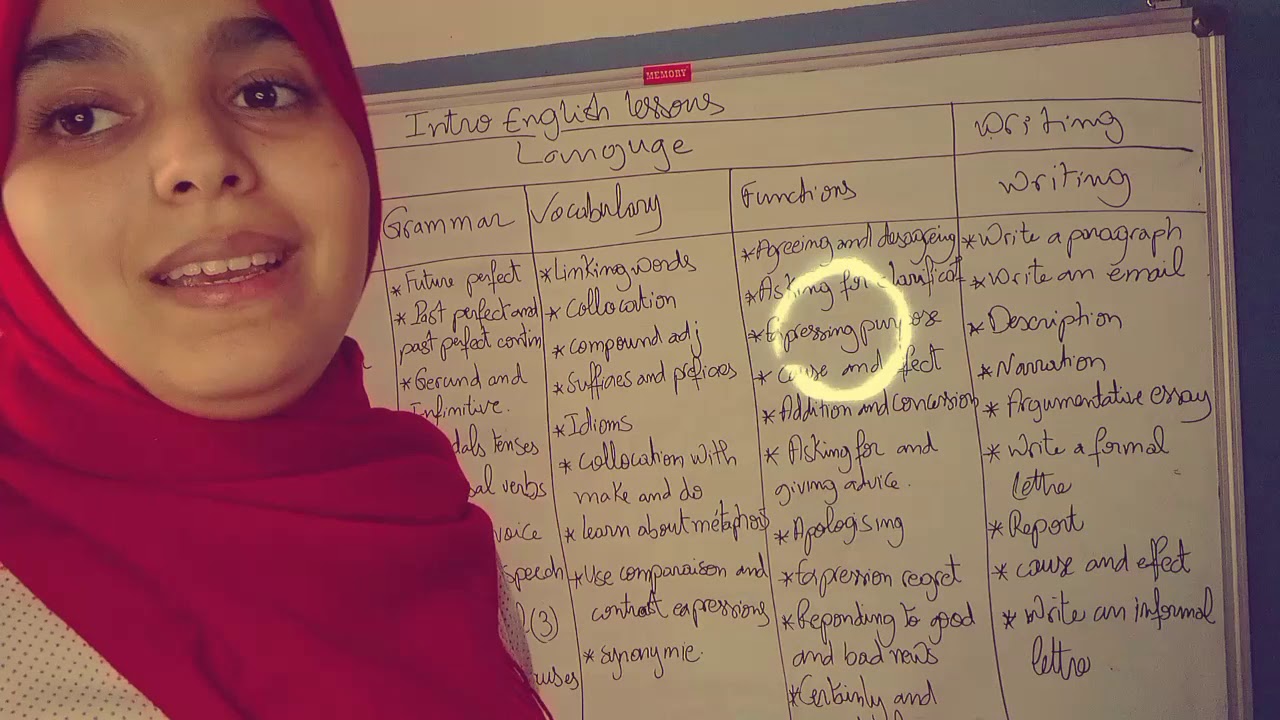 MEMORY
Intro English lessons
Writing
Language
Grammar
Vocabulary
Functions
Writing
* Future perfect
* Past perfect and
past perfect contin
* Gerund and
Infinitive.
dals tenses
al verbs
voice
speech
2(3)
auses
* Linking words
* Collocation
* compound adj
* Suffixes and prefixes
* Idioms
* collocation with
make and do
* learn about metaphors
* Use comparaison and
contrast expressions
* synonymie.
* Agreeing and desagreing
* Asking for clarificat
* Expressing purpose
* cause and effect
* Addition and concession
* Asking for and
giving advice.
* Apologising
* Expression regret
* Reponding to good
and bad news
* Certainly and
* Write a paragraph
* Write an email
* Description
* Narration
* Argumentative essay
* Write a formal
lettre
* Report
* cause and effect
* Write an informal
lettre